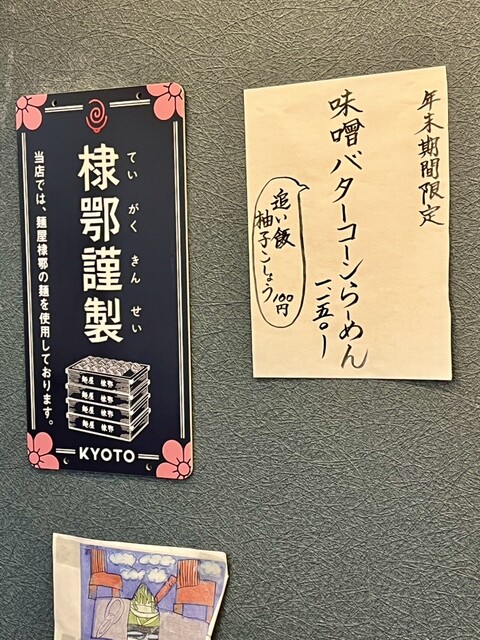 年末期間限定
味噌バターコーンらーめん
一、二五〇ー
追い飯
柚子こしょう 100円
棣鄂謹製
てい がく きん せい
当店では、麺屋棣鄂の麺を使用しております。
麺屋 棣鄂
麺屋 棣鄂
麺屋 棣鄂
麺屋 棣鄂
KYOTO